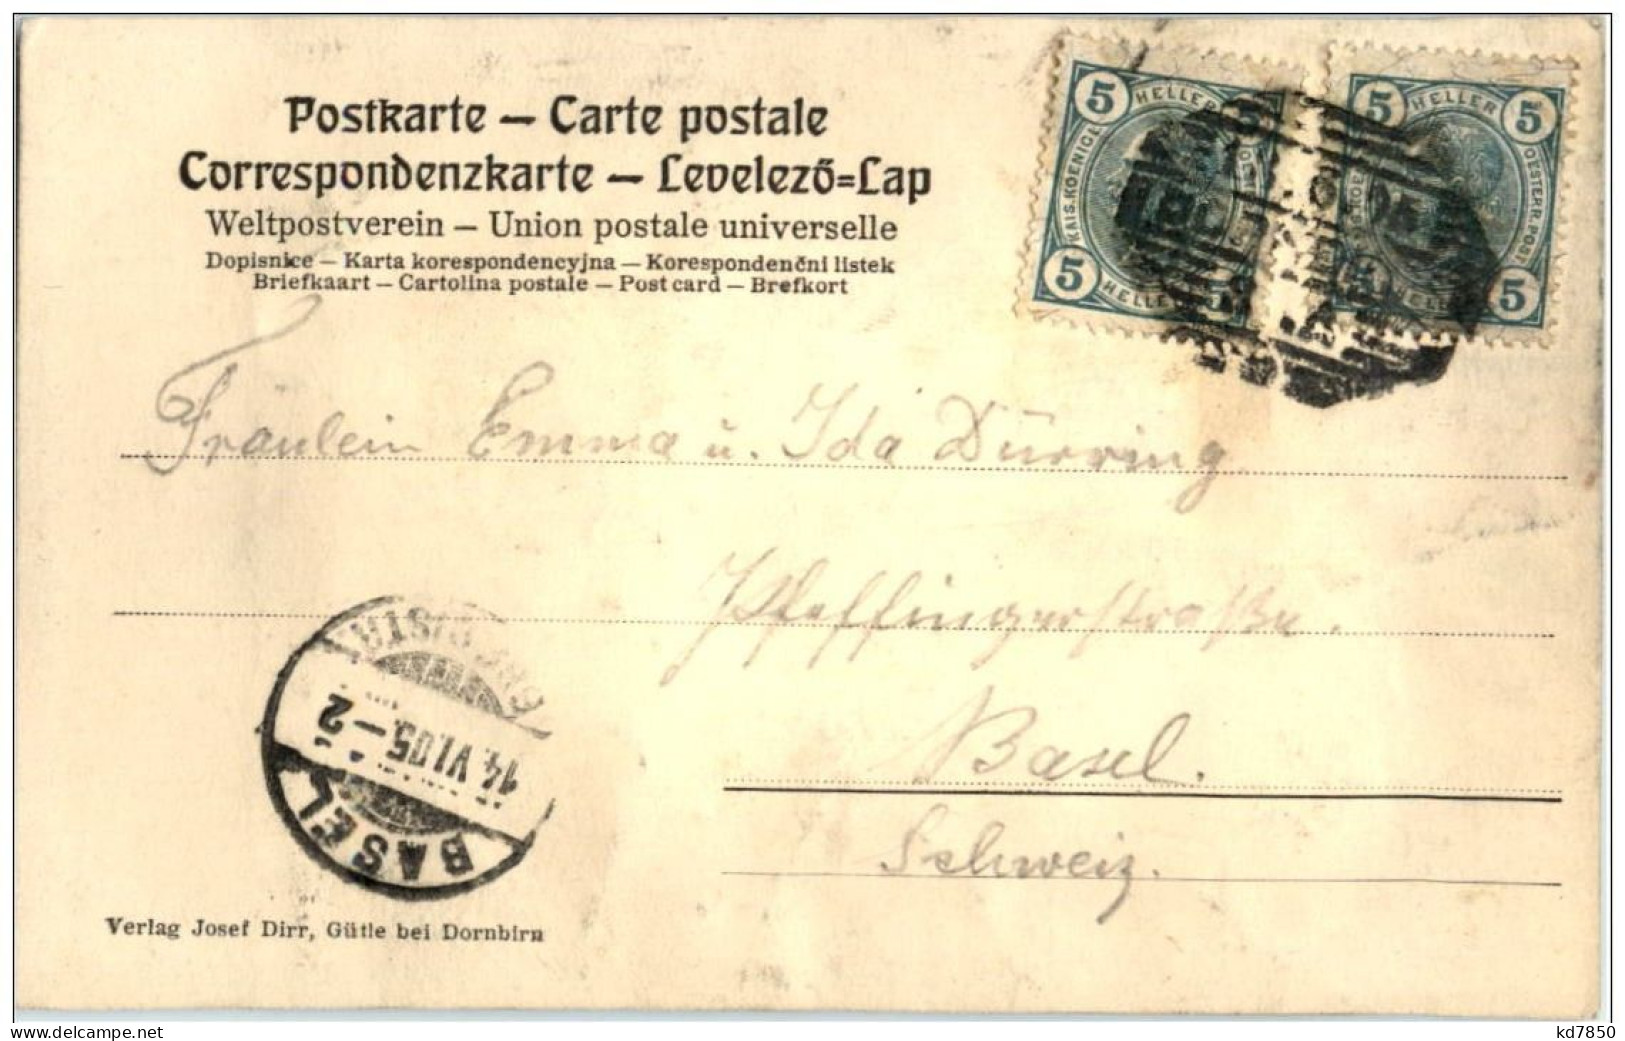 Postkarte — Carte postale
Correspondenzkarte — Levelező=Lap
Weltpostverein — Union postale universelle
Dopisnice — Karta korespondencyjna — Korespondenčni listek
Briefkaart — Cartolina postale — Post card — Brefkort
5 HELLER 5
KAIS. KOENIGL.
5 HELLER 5
5 HELLER 5
OESTERR. POST
HELLER 5
Fräulein Emma u. Ida Dürring
Pfeffingerstraße.
Basel.
Schweiz.
14.VI.05.–2
BASEL
Verlag Josef Dirr, Gütle bei Dornbirn
www.delcampe.net
kd7850